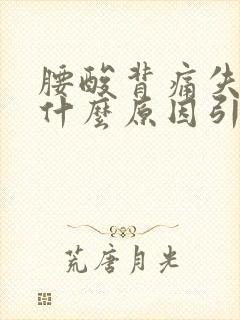 腰酸背痛失
什麼原因引
荒唐月光